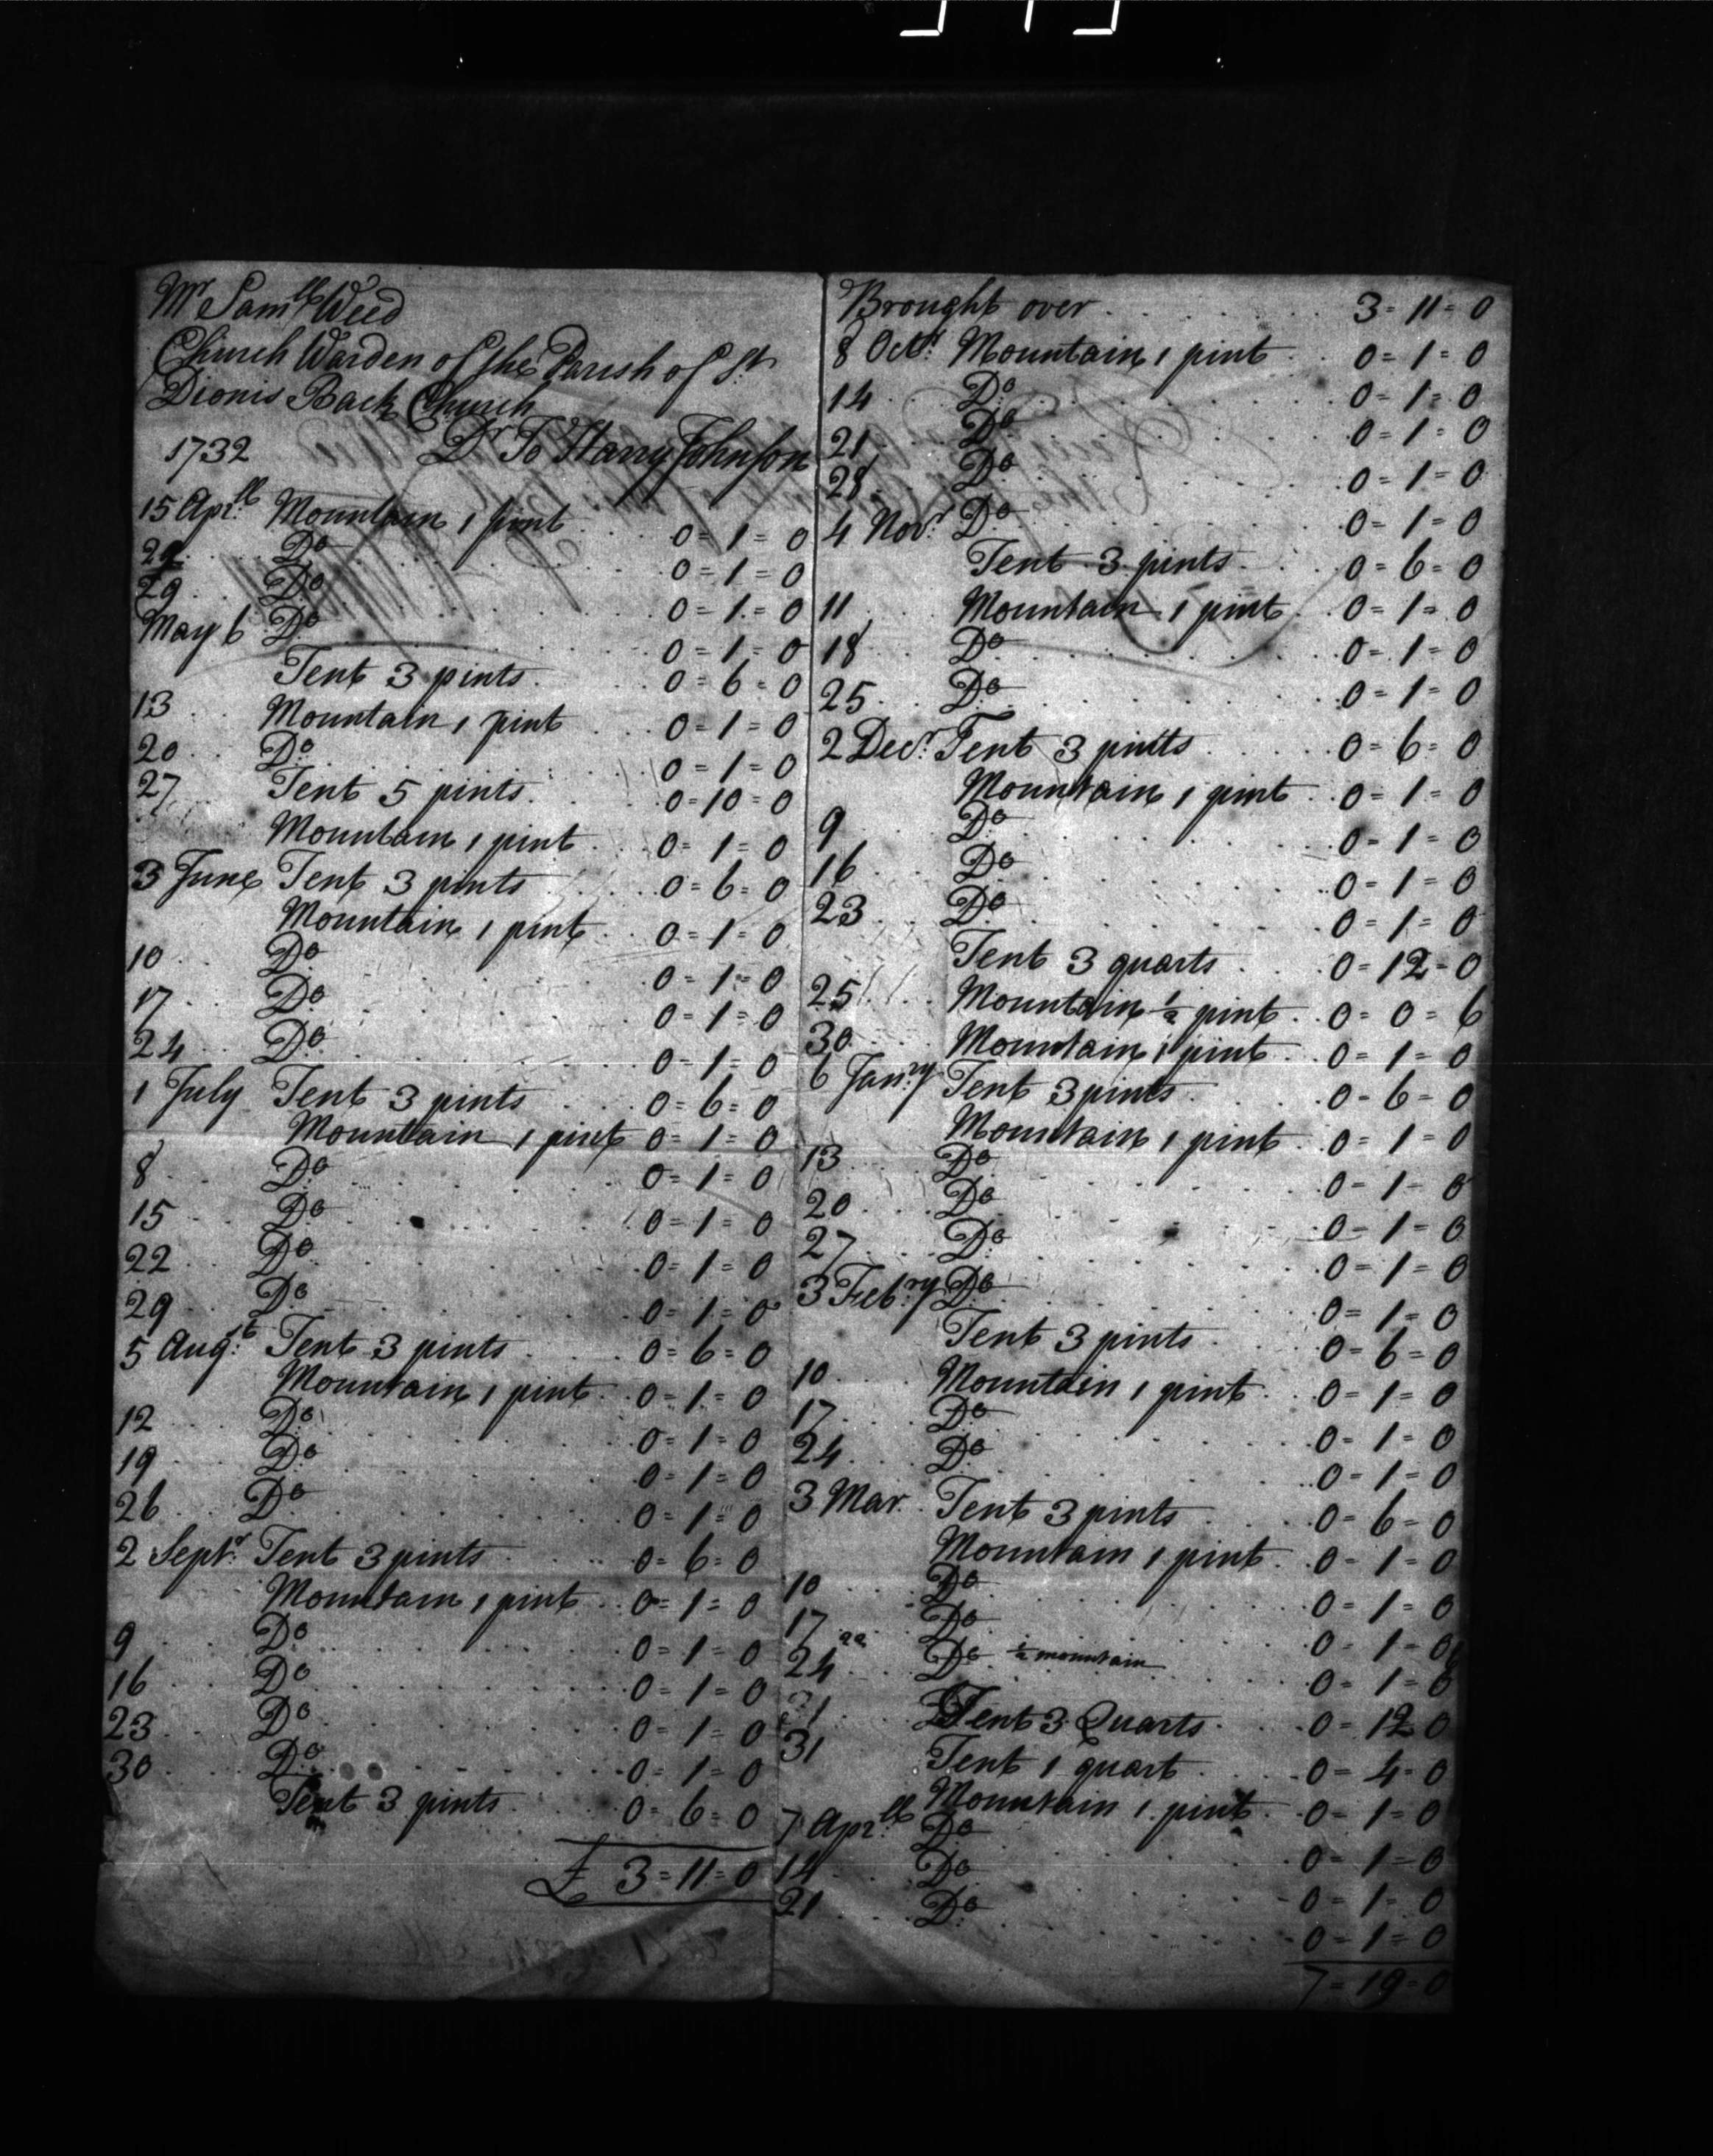 Mr. Samll Weed
Church Warden of the Parish of St.
Dionis Back Church
1732 Dr. To Harry Johnson
15 Aprll Mountain 1 pint 0=1=0
22 Do 0=1=0
29 Do 0=1=0
May 6 Do 0=1=0
Tent 3 pints 0=6=0
13 Mountain 1 pint 0=1=0
20 Do 0=1=0
27 Tent 5 pints 0=10=0
Mountain 1 pint 0=1=0
3 June Tent 3 pints 0=6=0
Mountain 1 pint 0=1=0
10 Do 0=1=0
17 Do 0=1=0
24 Do 0=1=0
1 July Tent 3 pints 0=6=0
Mountain 1 pint 0=1=0
8 Do 0=1=0
15 Do 0=1=0
22 Do 0=1=0
29 Do 0=1=0
5 Augt. Tent 3 pints 0=6=0
Mountain 1 pint 0=1=0
12 Do 0=1=0
19 Do 0=1=0
26 Do 0=1=0
2 Septr. Tent 3 pints 0=6=0
Mountain 1 pint 0=1=0
9 Do 0=1=0
16 Do 0=1=0
23 Do 0=1=0
30 Do 0=1=0
Tent 3 pints 0=6=0
£ 3=11=0
Brought over 3=11=0
8 Octr. Mountain 1 pint 0=1=0
14 Do 0=1=0
21 Do 0=1=0
28 Do 0=1=0
4 Novr. Do 0=1=0
Tent 3 pints 0=6=0
11 Mountain 1 pint 0=1=0
18 Do 0=1=0
25 Do 0=1=0
2 Decr. Tent 3 pints 0=6=0
Mountain 1 pint 0=1=0
9 Do 0=1=0
16 Do 0=1=0
23 Do 0=1=0
Tent 3 quarts 0=12=0
25 Mountain ½ pint 0=0=6
30 Mountain 1 pint 0=1=0
6 Janry Tent 3 pints 0=6=0
Mountain 1 pint 0=1=0
13 Do 0=1=0
20 Do 0=1=0
27 Do 0=1=0
3 Febry Do 0=1=0
Tent 3 pints 0=6=0
10 Mountain 1 pint 0=1=0
17 Do 0=1=0
24 Do 0=1=0
3 Mar. Tent 3 pints 0=6=0
Mountain 1 pint 0=1=0
10 Do 0=1=0
17 Do 0=1=0
24 Do ½ mountain 0=1=6
Tent 3 Quarts 0=12=0
31 Tent 1 quart 0=4=0
Mountain 1 pint 0=1=0
7 Aprll Do 0=1=0
14 Do 0=1=0
21 Do 0=1=0
7=19=0